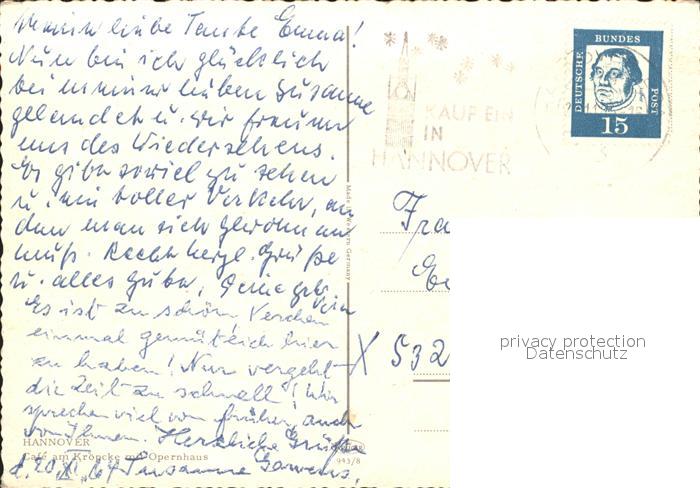 Meine liebe Tante Emma!
Nun bin ich glücklich
bei meiner lieben Susanne
gelandet u. wir freuen
uns des Wiedersehens.
Es gibt soviel zu sehen
u. ein toller Verkehr, an
den man sich gewöhnen
muß. Recht herzl. Grüße
u. alles Gute, Deine
Es ist zu schön,
einmal gemütlich hier
zu haben! Nur vergeht
die Zeit zu schnell! Wir
sprechen viel von früher, auch
von Ihnen. Herzliche Grüße
d. 20. XI. 64
HANNOVER
Café am Kröpcke mit Opernhaus
943/8
Made in Western Germany
KAUF EIN
IN
HANNOVER
DEUTSCHE BUNDES POST
15
Fra
532
privacy protection
Datenschutz